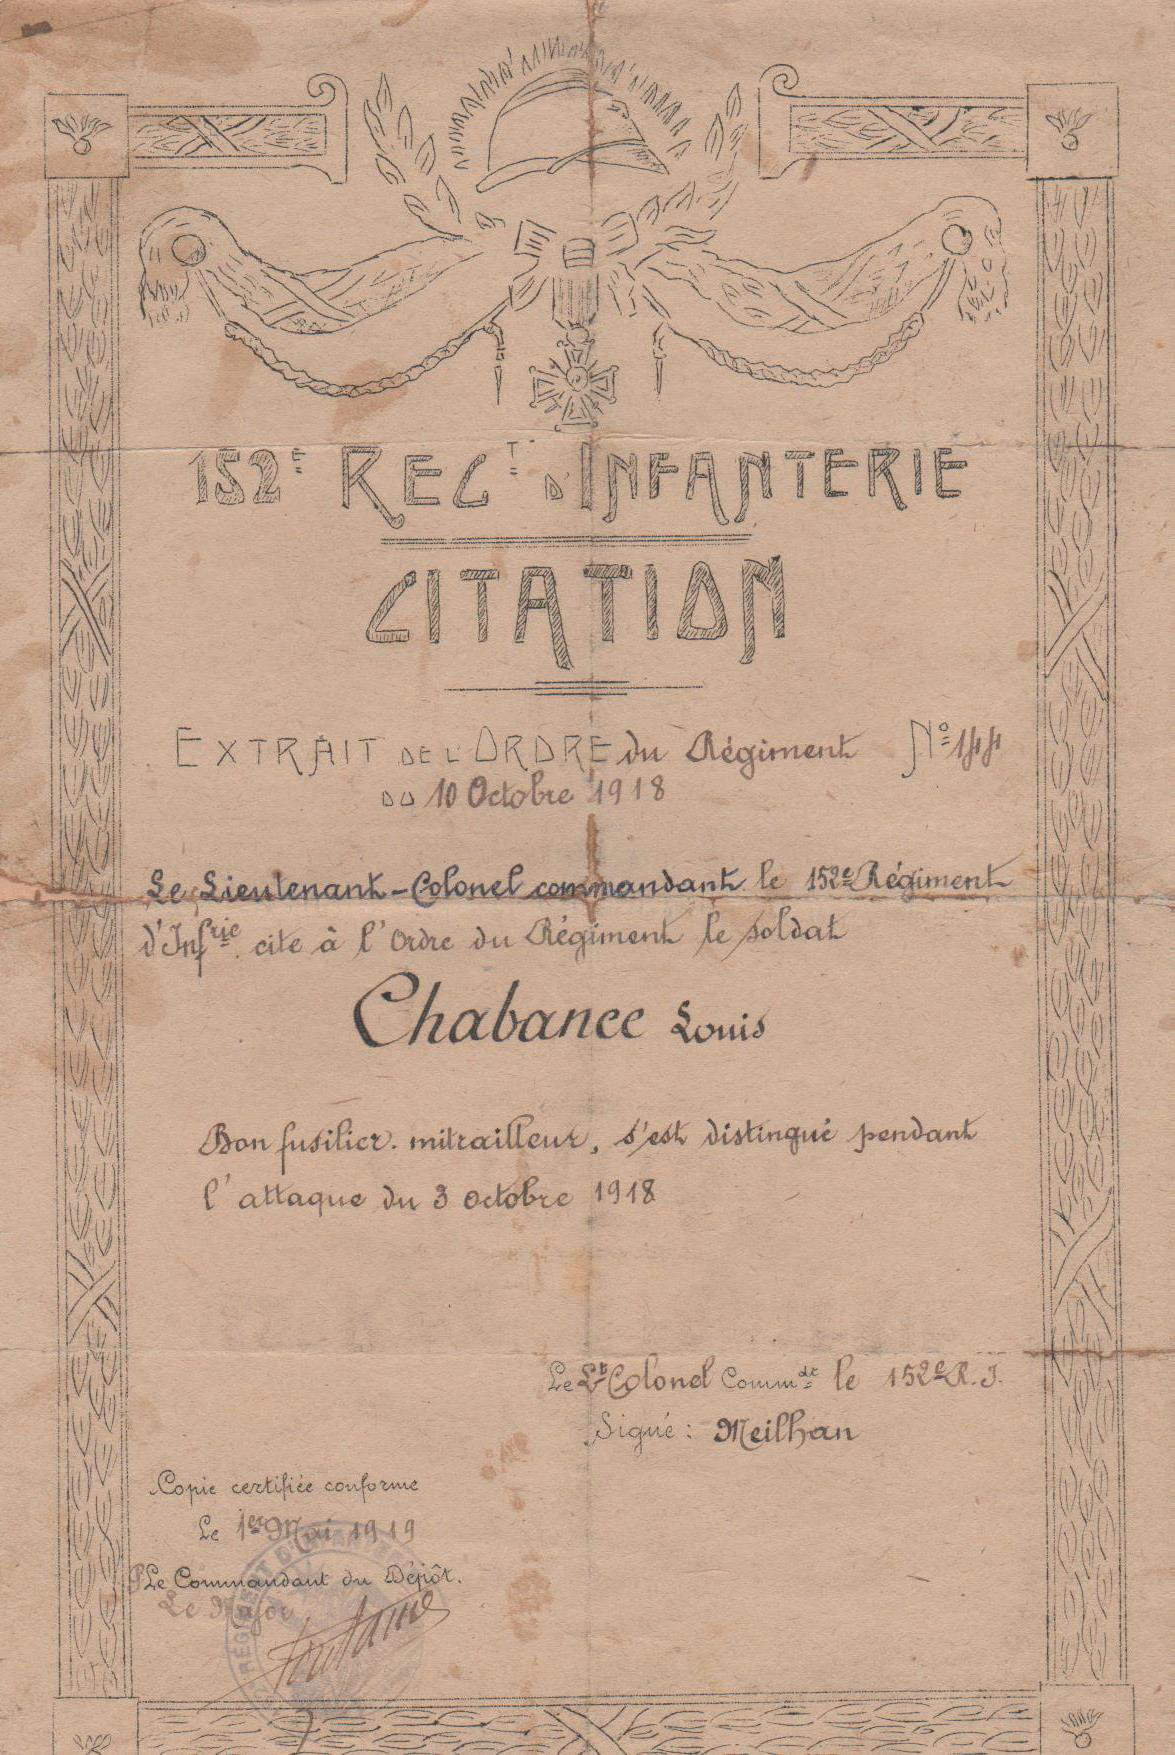 152E REGT D'INFANTERIE
CITATION
EXTRAIT DE L'ORDRE du Régiment No 144
DU 10 Octobre 1918
Le Lieutenant-Colonel commandant le 152e Régiment
d'Infrie cite à l'Ordre du Régiment le soldat
Chabance Louis
Bon fusilier. mitrailleur, s'est distingué pendant
l'attaque du 3 octobre 1918
Le Lt Colonel Commdt le 152e R.I.
Signé: Meilhan
Copie certifiée conforme
Le 1er Mai 1919
P Le Commandant du Dépôt.
Le Major
RÉGIMENT D'INFANTERIE